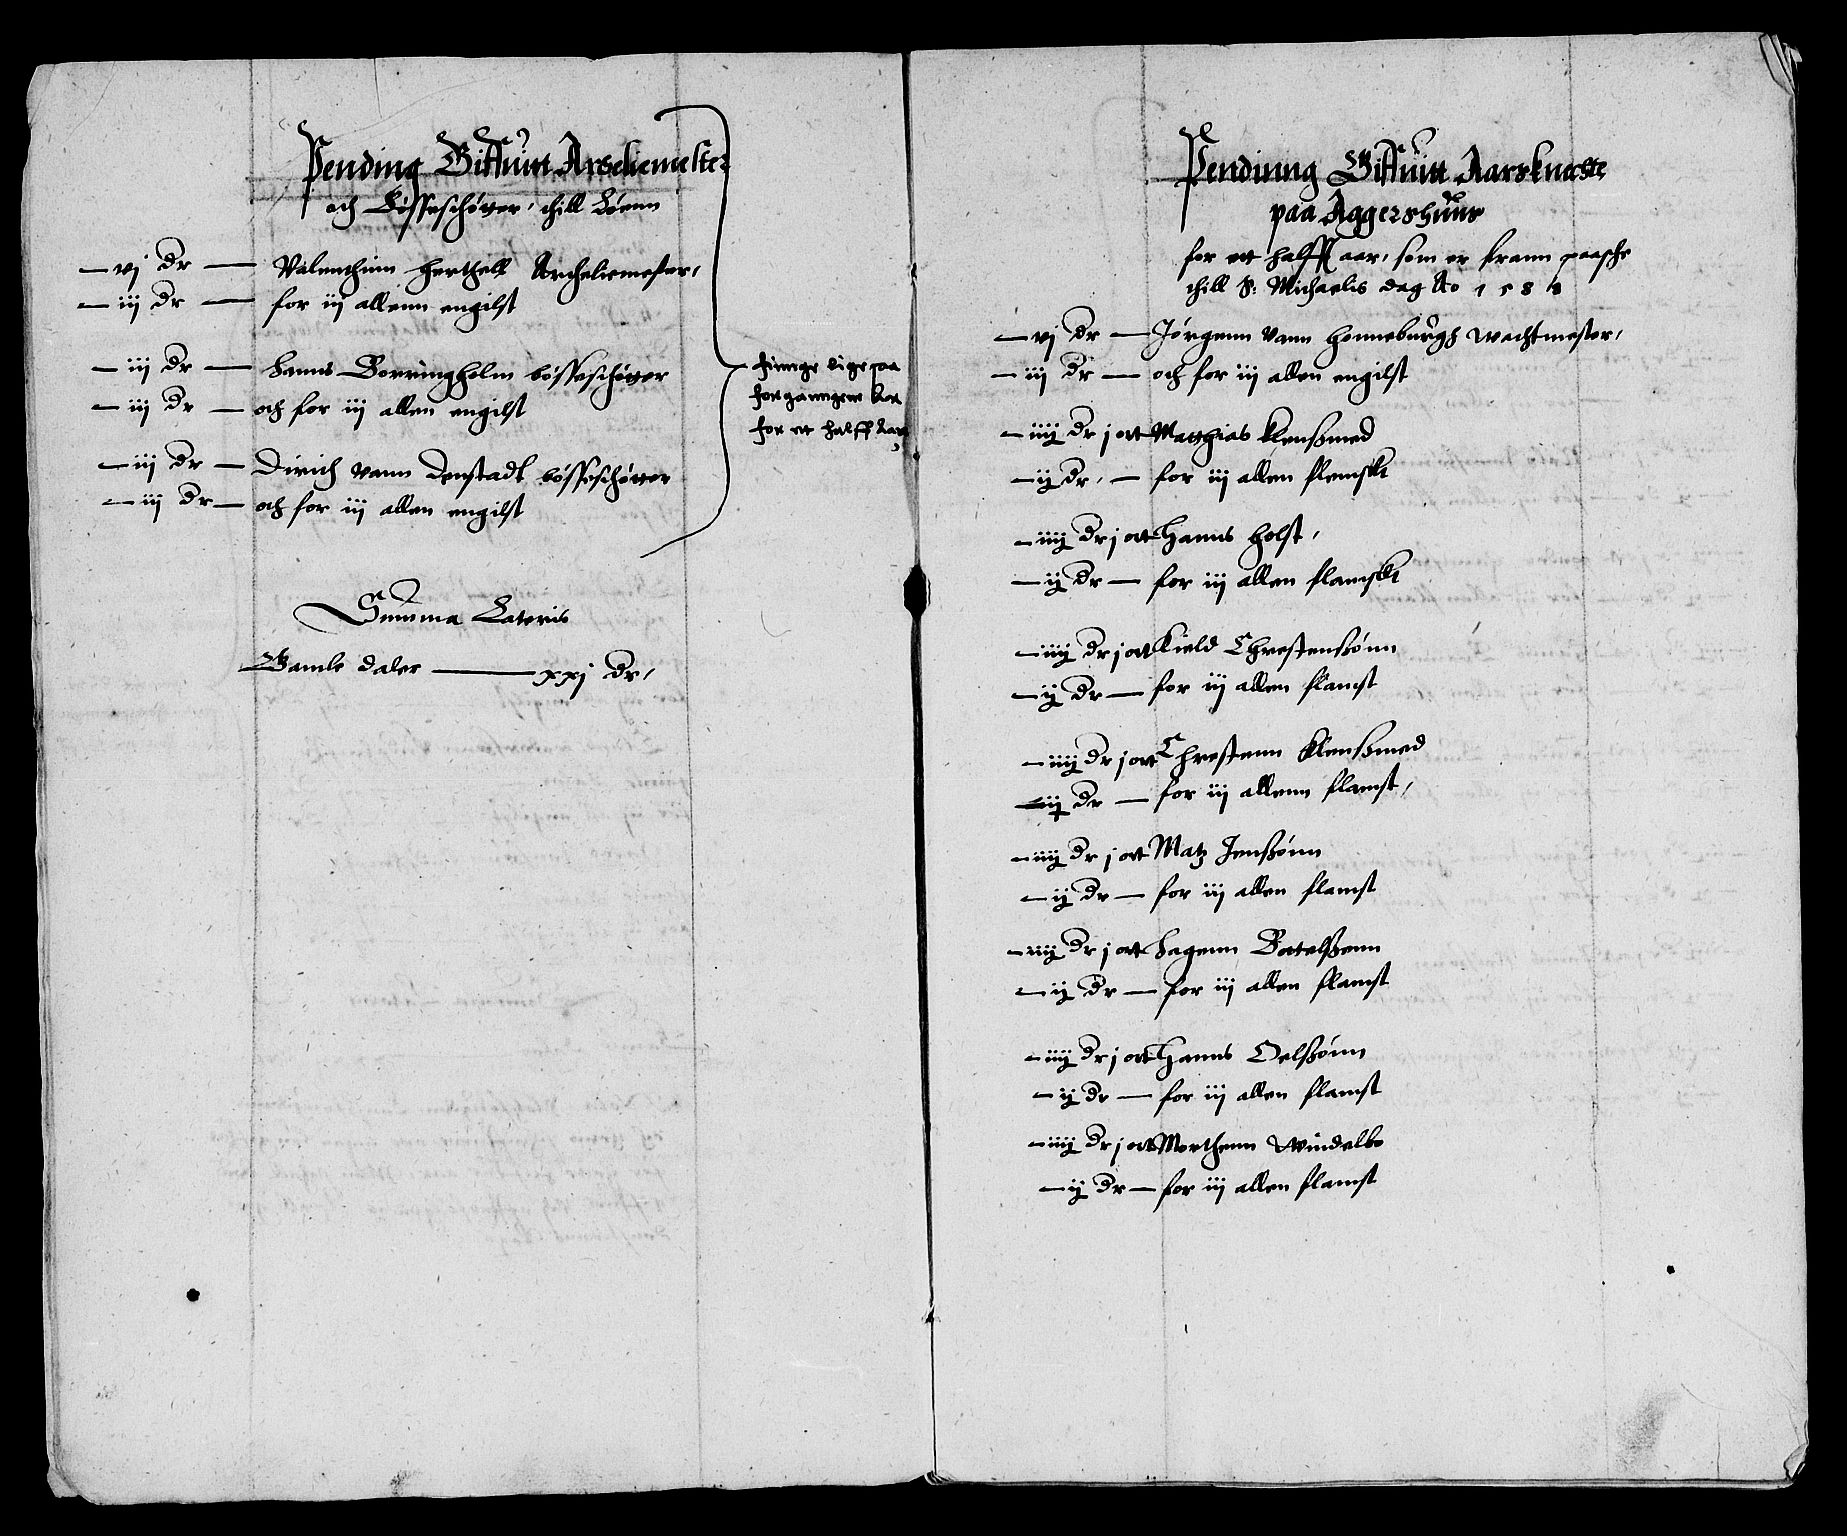 Pending Giffuitt Arckeliemester
och Bósseschótter, thill Lóenn
– vj dr – Valenthinn Herthell Archeliemester,
– iij dr – for iij allenn engilst
– iij dr – Hanns Borringholm bósseschótter
– iij dr – och for iij allen engilst
– iij dr – Dirich vann Denstadt bósseschótter
– iij dr – och for iij allen engilst
Summa Lateris
Gamle daler – xxj dr,
fiinge lige paa
forganngene Aar
for ett halff Aar
Pendinng Giffuitt Aarsknecte
paa Aggershuus
for ett halff aar, som er frann paasche
thill S: Michaelis dag Ao 158
– vj dr – Jórgenn vann Honneburgh wachtmester,
– iij dr – och for iij allen engilst
– iiij dr j ort Matthias Klensmed
– ij dr, – for iij allen flemskt
– iiij dr j ort Hanns Holst,
– ij dr – for iij allen flamskt
– iiij dr j ort Kield Chrestensónn
– ij dr – for iij allen flamst
– iiij dr j ort Chrestenn Klensmed
– ij dr – for iij allenn flamst,
– iiij dr j ort Matz Jensónn
– ij dr – for iij allen flamst
– iiij dr j ort Hagenn Botelsenn
– ij dr – for iij allen flamst
– iiij dr j ort Hanns Oelsónn
– ij dr – for iij allen flamst
– iiij dr j ort Morthenn Windelbo
– ij dr – for iij allen flamst